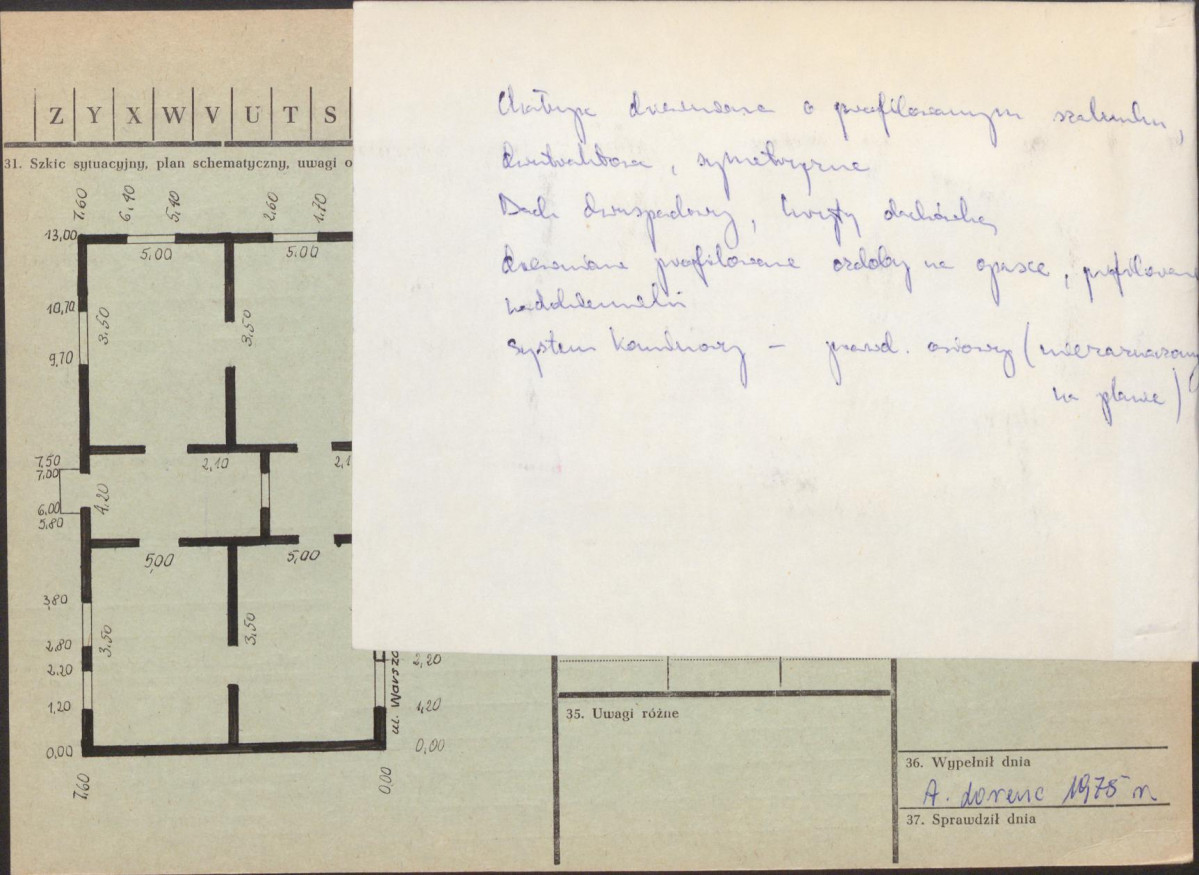 Z Y X W V U T S
31. Szkic sytuacyjny, plan schematyczny, uwagi o
7.60 6,40 5,40 2,60 1.70
13,00
5,00 5,00
10,70
3.50 3,50
9,70
7,50
7,00
2,10 2,1
4.20
6,00
5,80
5,00 5,00
3,80
3,50 3,50
2,80
2,20
1,20
0,00
7,60
0,00
ul. Warsza
2,20
1,20
0,00
drewniana o profilowanym szalunku,
symetryczna
Dach dwuspadowy, kryty dachówką
drewniane profilowane ozdoby na opasce, profilowane
system kominowy – prawd. osiowy (niezaznaczony
na planie)
35. Uwagi różne
36. Wypełnił dnia
A. Lorenc 1975 r.
37. Sprawdził dnia